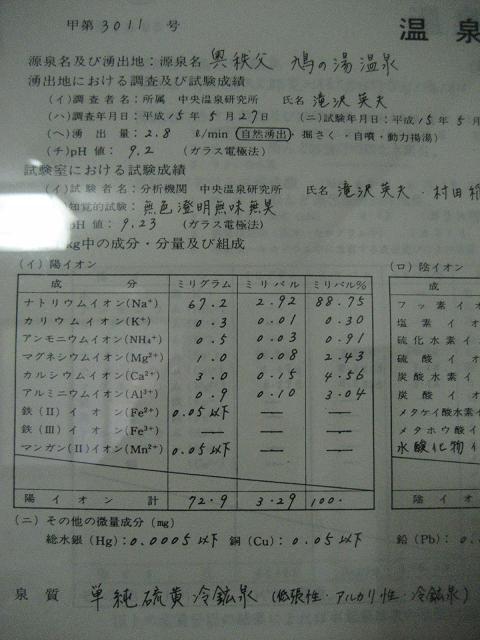 甲第 3011 号
温泉
源泉名及び湧出地：源泉名 奥秩父 鳩の湯温泉
湧出地における調査及び試験成績
(イ)調査者名：所属 中央温泉研究所 氏名 滝沢英夫
(ハ)調査年月日：平成15年5月27日 (ニ)試験年月日：平成15年5月
(ヘ)湧出量：2.8 ℓ/min (自然湧出・掘さく・自噴・動力揚湯)
(チ)pH値：9.2 (ガラス電極法)
試験室における試験成績
(イ)試験者名：分析機関 中央温泉研究所 氏名 滝沢英夫・村田
知覚的試験：無色澄明無味無臭
pH値：9.23 (ガラス電極法)
kg中の成分・分量及び組成
(イ)陽イオン (ロ)陰イオン
成分 ミリグラム ミリバル ミリバル% 成
ナトリウムイオン(Na⁺) 67.2 2.92 88.75 フッ素イ
カリウムイオン(K⁺) 0.3 0.01 0.30 塩素イ
アンモニウムイオン(NH₄⁺) 0.5 0.03 0.91 硫化水素イ
マグネシウムイオン(Mg²⁺) 1.0 0.08 2.43 硫酸イ
カルシウムイオン(Ca²⁺) 3.0 0.15 4.56 炭酸水素イ
アルミニウムイオン(Al³⁺) 0.9 0.10 3.04 炭酸イ
鉄(II)イオン(Fe²⁺) 0.05以下 — — メタケイ酸水素イ
鉄(III)イオン(Fe³⁺) — — — メタホウ酸イ
マンガン(II)イオン(Mn²⁺) 0.05以下 — — 水酸化物イ
陽イオン計 72.9 3.29 100. 陰イオ
(ニ)その他の微量成分(mg)
総水銀(Hg)：0.0005以下 銅(Cu)：0.05以下 鉛(Pb)：0.
泉質 単純硫黄冷鉱泉(低張性・アルカリ性・冷鉱泉)